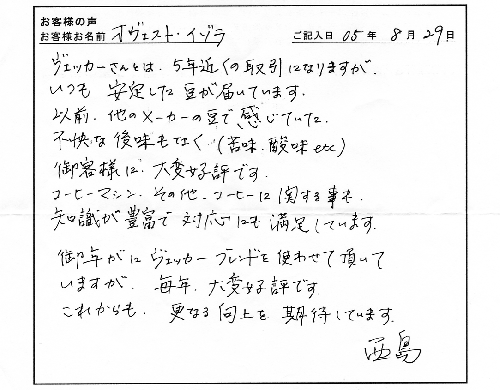 お客様の声
お客様お名前 オヴェスト・イゾラ ご記入日 05年 8月 29日
ヴェッカーさんとは、5年近くの取引になりますが、
いつも 安定した 豆が届いています。
以前、他のメーカーの豆で、感じていた、
不快な後味もなく (苦味、酸味etc)
御客様に 大変好評です。
コーヒーマシン、その他、コーヒーに関する事も、
知識が豊富で 対応にも 満足しています。
御年がに ヴェッカー ブレンドを使わせて頂いて
いますが、毎年、大変好評です
これからも、更なる向上を 期待しています。
西島